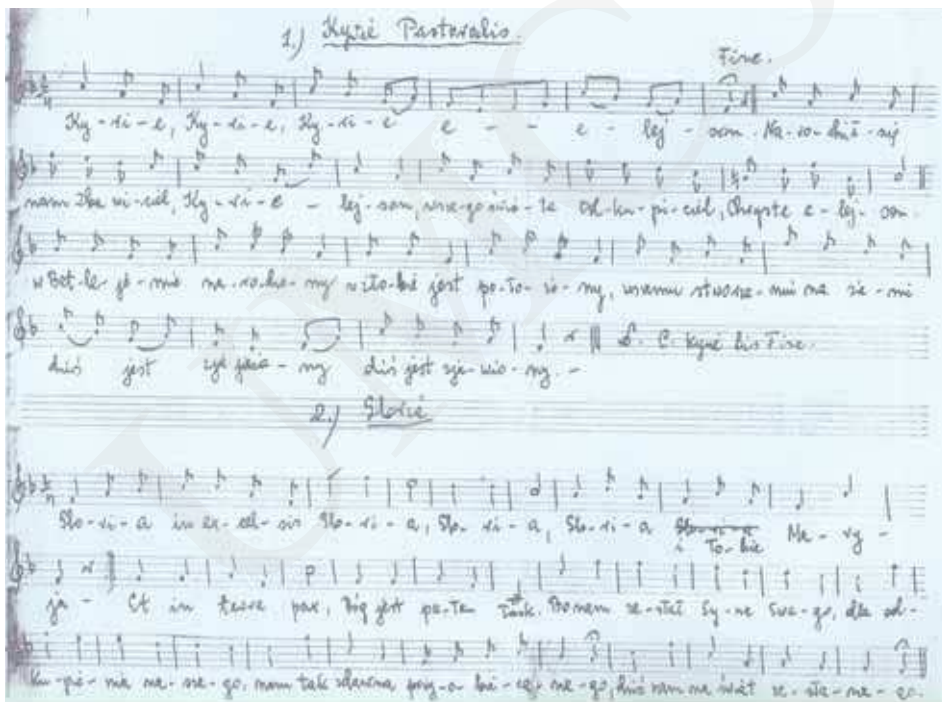 1.) Kyrie Pastoralis.
Fine.
Ky-ri-e, Ky-ri-e, Ky-ri-e e - - e - lej - son. Na-ro-dził-się
nam Zba-wi-ciel, Ky-ri-e - lej-son, wsze-go świa-ta Od-ku-pi-ciel, Chryste e-lej-son.
w Bet-le-je-mie na-ro-dzo-ny w żło-bie jest po-ło-żo-ny, wsemu stworze-niu na zie-mi
dziś jest - ny dziś jest zja-wio-ny. -
D. C. Kyrie bis Fine.
2.) Gloria
Glo-ri-a in ex-cel-sis Glo-ri-a, Glo-ri-a, Glo-ri-a i To-bie Ma-ry-
ja - Et in terra pax, Bóg jest pa-tem łask. Bo nam ze-słał Sy-na swe-go, dla od-
ku-pie-nia na-sze-go, nam tak dawna przy-o-bie-ca-ne-go, dziś nam na świat ze-sła-ne-go.